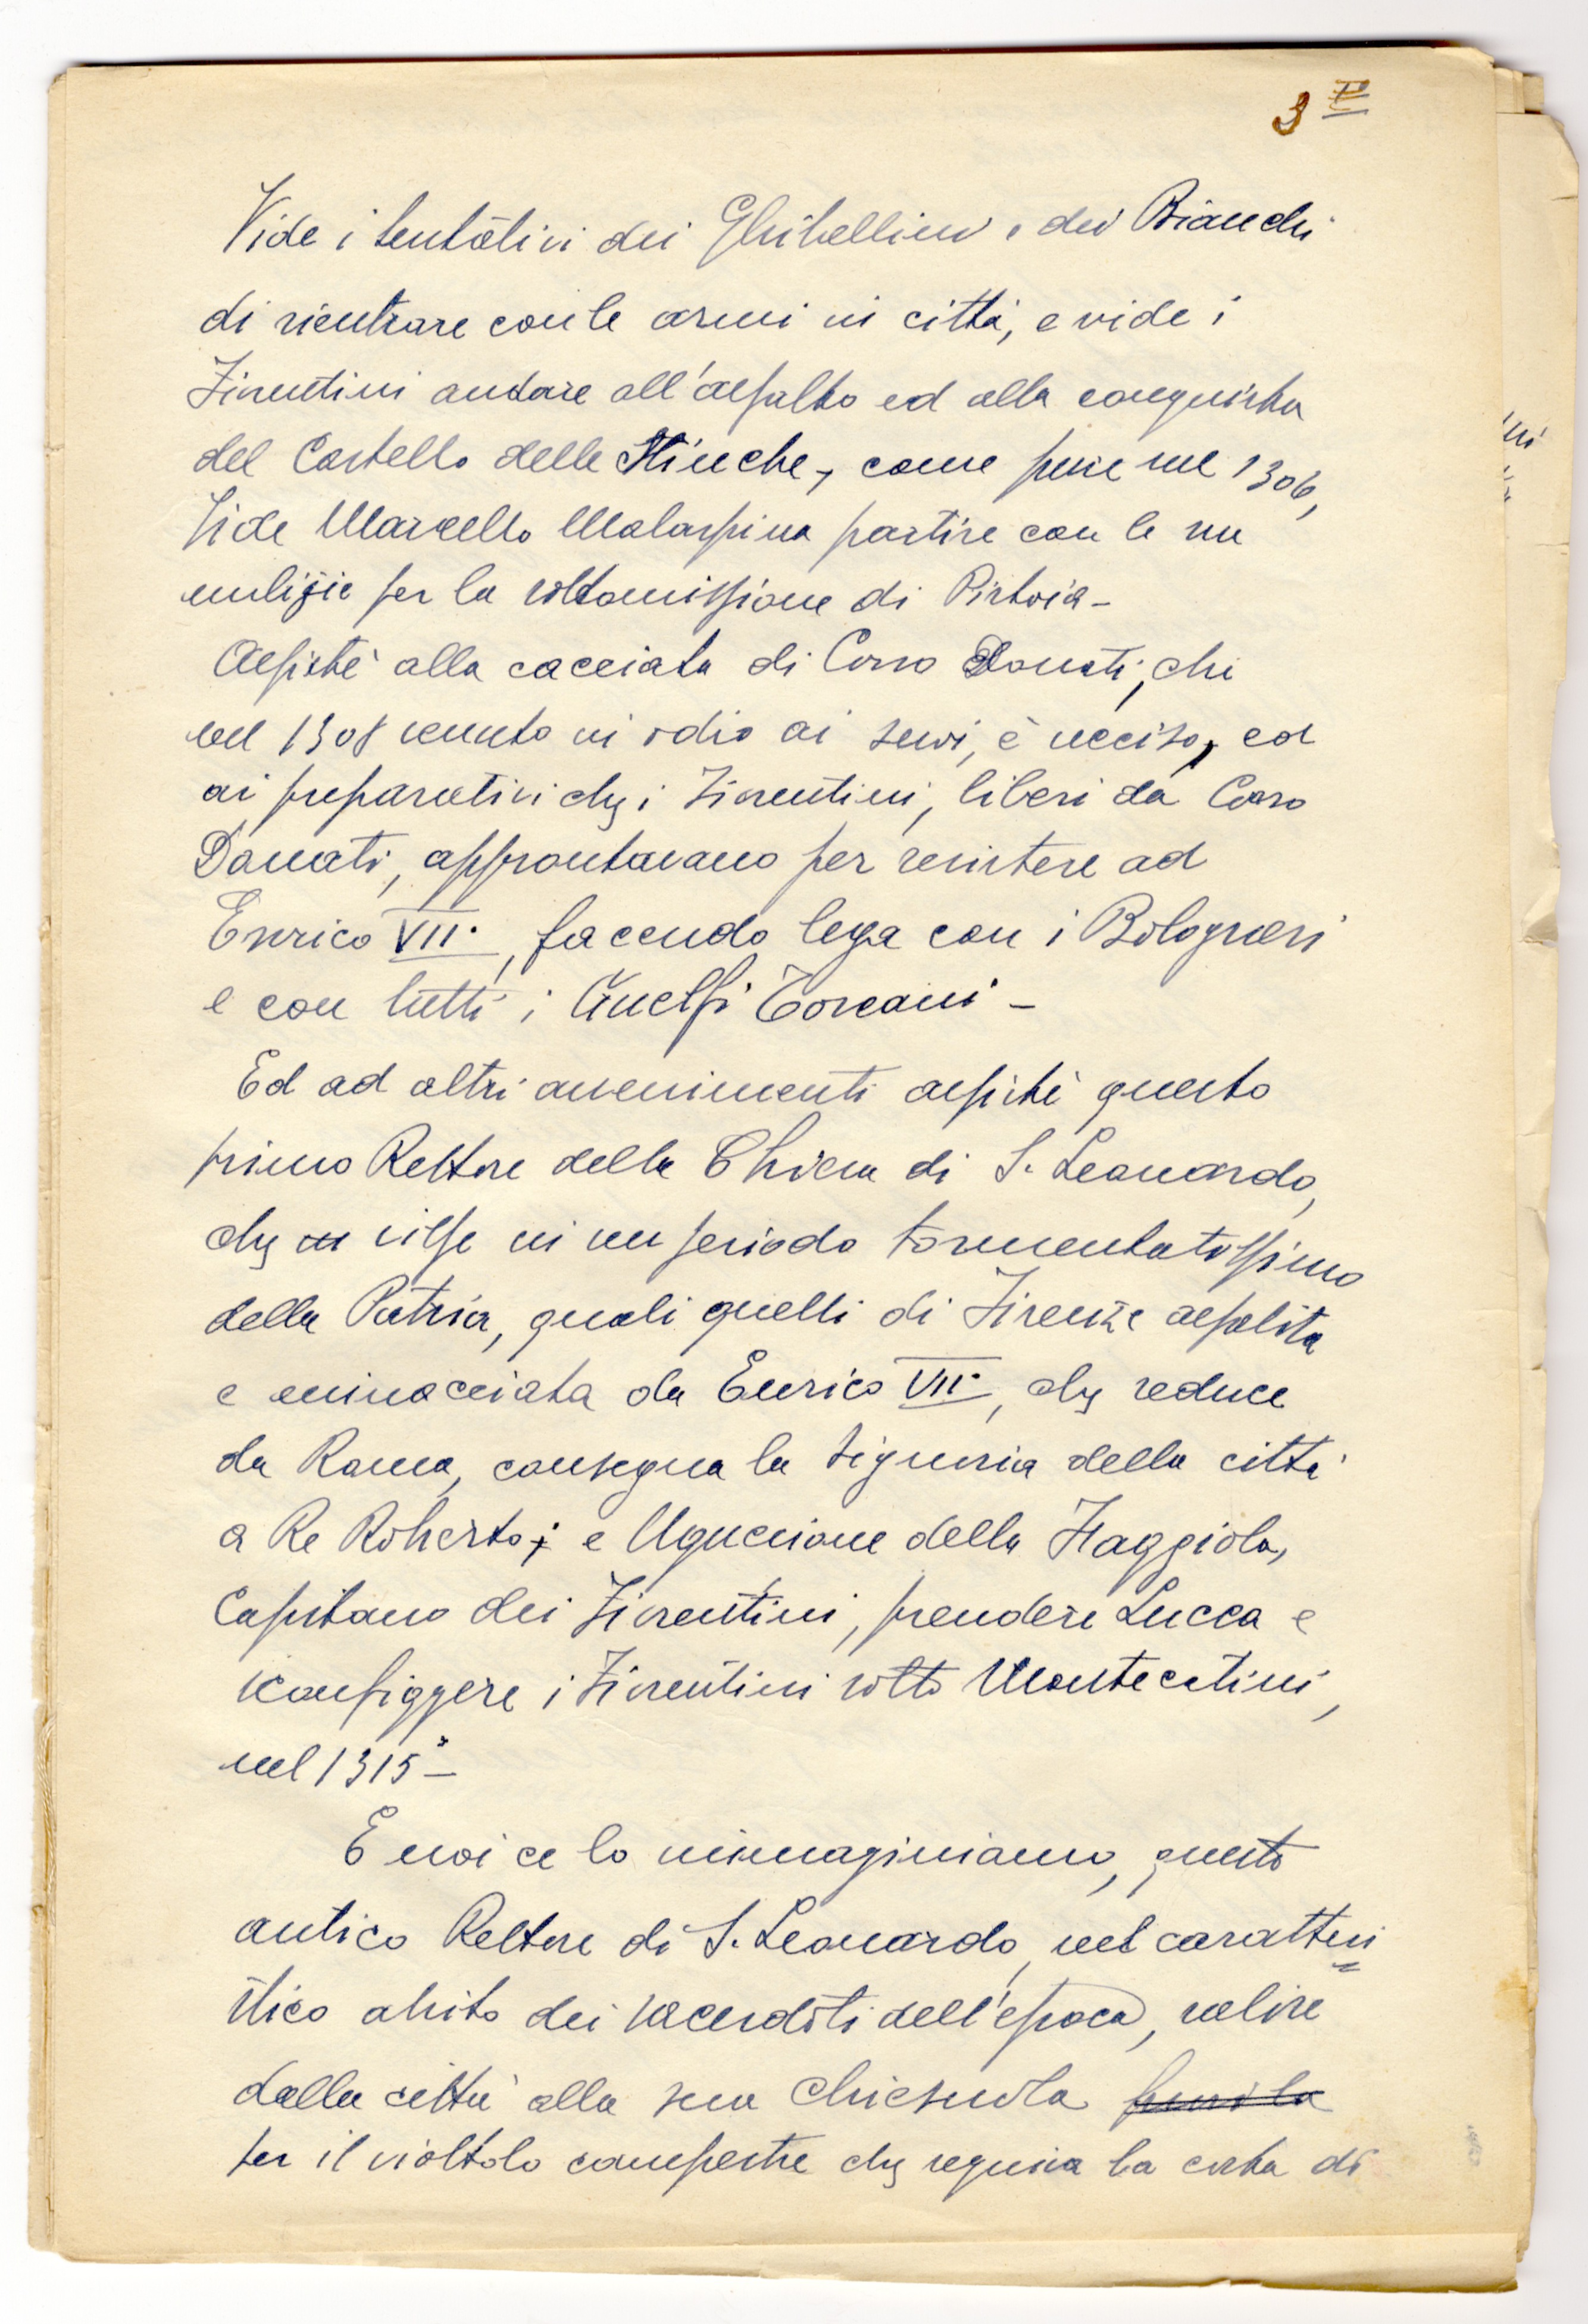 3
Vide i tentativi dei Ghibellini e dei Bianchi
di rientrare con le armi in città, e vide i
Fiorentini andare all'assalto ed alla conquista
del Castello delle Stinche, come pure nel 1306,
Vide Marcello Malaspina partire con le sue
milizie per la sottomissione di Pistoia -
Assistè alla cacciata di Corso Donati, che
nel 1308 venuto in odio ai suoi, è ucciso, ed
ai preparativi che i Fiorentini, liberi da Corso
Donati, approntavano per resistere ad
Enrico VII°, facendo lega con i Bolognesi
e con tutti i Guelfi Toscani -
Ed ad altri avvenimenti assistè questo
primo Rettore della Chiesa di S. Leonardo,
che visse in un periodo tormentatissimo
della Patria, quali quelli di Firenze assalita
e minacciata da Enrico VII°, che reduce
da Roma, consegna la signoria della città
a Re Roberto; e Uguccione della Faggiola,
Capitano dei Fiorentini, prendere Lucca e
sconfiggere i Fiorentini sotto Montecatini,
nel 1315 -
E noi ce lo immaginiamo, questo
antico Rettore di S. Leonardo, nel caratteri
stico abito dei sacerdoti dell'epoca, salire
dalla città alla sua chiesuola
per il viottolo campestre che seguiva la costa di